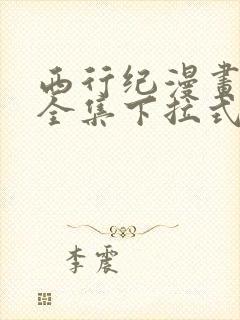 西行纪漫畫
全集下拉式
李震